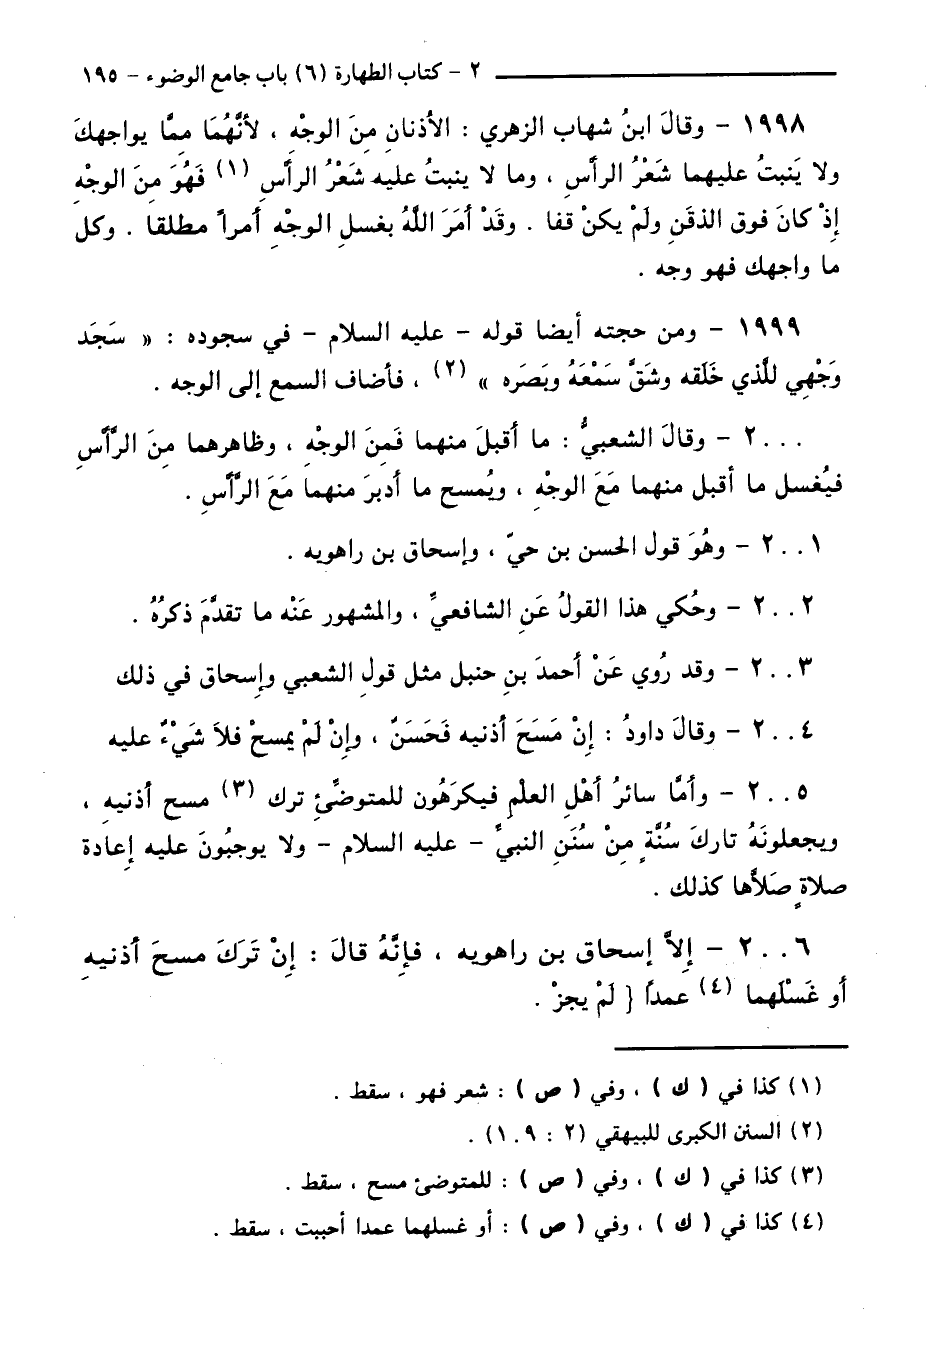 ٢ - كتاب الطهارة (٦) باب جامع الوضوء - ١٩٥
١٩٩٨ - وقالَ ابنُ شهاب الزهري : الأذنان مِنَ الوجْهِ ، لأنَّهُمَا مِمَّا يواجهكَ
ولا يَنبتُ عليهما شَعْرُ الرأسِ ، وما لا ينبتُ عليه شَعْرُ الرأسِ (١) فَهُوَ مِنَ الوجْهِ
إذْ كانَ فوق الذقَنِ ولَمْ يكنْ قفا . وقَدْ أمَرَ اللَّهُ بغسلِ الوجْهِ أمراً مطلقا . وكل
ما واجهك فهو وجه .
١٩٩٩ - ومن حجته أيضا قوله - عليه السلام - في سجوده : « سَجَد
وَجْهِي للَّذي خَلَقه وشَقَّ سَمْعَهُ وبَصَره » (٢) ، فأضاف السمع إلى الوجه .
٢٠٠٠ - وقالَ الشعبيُّ : ما أقبلَ منهما فَمِنَ الوجْهِ ، وظاهرهما مِنَ الرَّأسِ
فيُغسل ما أقبل منهما مَعَ الوجْهِ ، ويُمسح ما أدبرَ منهما مَعَ الرَّأسِ .
٢٠٠١ - وهُوَ قول الحسن بن حيّ ، وإسحاق بن راهويه .
٢٠٠٢ - وحُكي هذا القولُ عَنِ الشافعيِّ ، والمشهور عَنْه ما تقدَّمَ ذكرُهُ .
٢٠٠٣ - وقد رُوي عَنْ أحمدَ بنِ حنبل مثل قولِ الشعبي وإسحاق في ذلك
٢٠٠٤ - وقالَ داودُ : إنْ مَسَحَ أذنيه فَحَسَنٌ ، وإنْ لَمْ يمسحْ فلاَ شَيْءٌ عليه
٢٠٠٥ - وأمَّا سائرُ أهْلِ العلْمِ فيكرَهُون للمتوضِّئِ ترك (٣) مسح أذنيه ،
ويجعلونَهُ تاركَ سُنَّةٍ مِنْ سُنَنِ النبيِّ - عليه السلام - ولا يوجبُونَ عليه إعادة
صلاةٍ صَلاَّها كذلك .
٢٠٠٦ - إلاَّ إسحاق بن راهويه ، فإنَّهُ قالَ : إنْ تَرَكَ مسحَ أذنيهِ
أو غَسْلَهما (٤) عمداً { لَمْ يجزْ .
(١) كذا في ( ك ) ، وفي ( ص ) : شعر فهو ، سقط .
(٢) السنن الكبرى للبيهقي (٢ : ١٠٩) .
(٣) كذا في ( ك ) ، وفي ( ص ) : للمتوضئ مسح ، سقط .
(٤) كذا في ( ك ) ، وفي ( ص ) : أو غسلهما عمدا أحببت ، سقط .